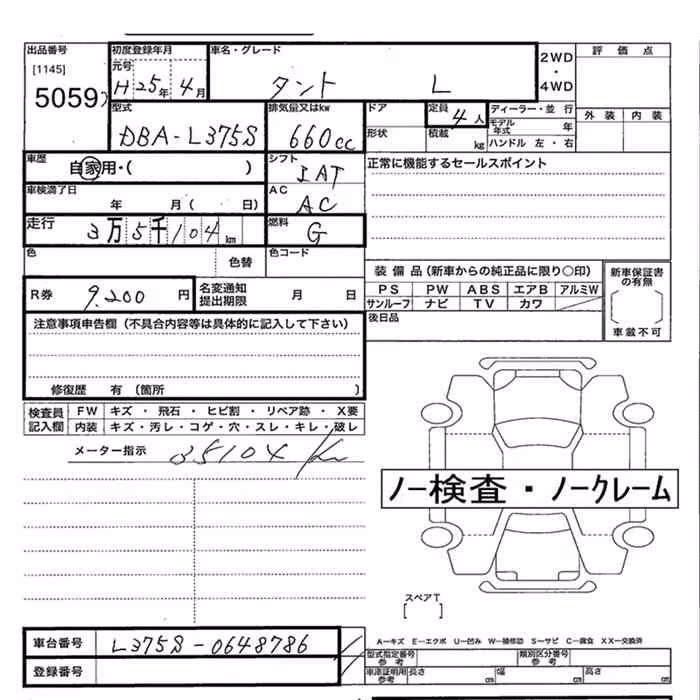 出品番号 初度登録年月 車名・グレード 2WD・4WD 評価点
[1145] 元号
5059 H 25年 4月 タント L
外装 内装
型式 排気量又はkw ドア 定員 4人 ディーラー・並行
DBA-L375S 660cc 形状 積載 kg モデル年式 年
ハンドル 左・右
車歴 シフト 正常に機能するセールスポイント
自家用・( ) IAT
車検満了日 AC
年 月( 日) AC
走行 3万5千104km 燃料 G
色 色替 色コード
装備品(新車からの純正品に限り○印) 新車保証書の有無
R券 9.200円 名変通知提出期限 月 日
PS PW ABS エアB アルミW
サンルーフ ナビ TV カワ
車載不可
後日品
注意事項申告欄(不具合内容等は具体的に記入して下さい)
修復歴 有(箇所 )
検査員記入欄 FW キズ・飛石・ヒビ割・リペア跡・X要
内装 キズ・汚レ・コゲ・穴・スレ・キレ・破レ
メーター指示 35104 km
ノー検査・ノークレーム
スペアT
[ ]
車台番号 L375S-0648786
登録番号
A—キズ E—エクボ U—凹み W—補修跡 S—サビ C—腐食 XX—交換済
型式指定番号 参考 類別区分番号 参考
車庫証明用 参考 長さ cm 幅 cm 高さ cm